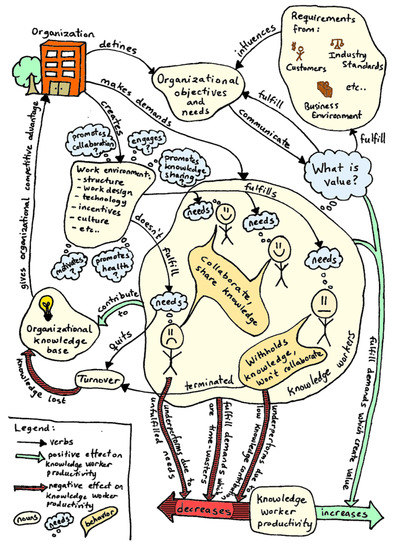 Organization
defines
influences
Requirements
from:
Customers
Industry
Standards
etc..
Business
Environment
Organizational
objectives
and
needs
makes demands
creates
fulfill
communicate
fulfill
What is
value?
promotes
collaboration
?
engages
?
promotes
knowledge
sharing?
Work environment:
- structure
- work design
- technology
- incentives
- culture
- etc...
motivates
?
promotes
health?
fulfills
needs
needs
needs
doesn't
fulfill
needs
Collaborate,
share knowledge
Withholds
knowledge,
won't collaborate
knowledge
workers
gives organizational competitive advantage
contribute
to
Organizational
knowledge
base
quits
Turnover
terminated
knowledge lost
underperforms due to
unfulfilled needs
fulfill demands which
are time-wasters
underperforms due to
low knowledge contribution
fulfill demands which create value
decreases
knowledge
worker
productivity
increases
Legend:
verbs
positive effect on
knowledge worker
productivity
negative effect on
knowledge worker
productivity
nouns
needs
behavior